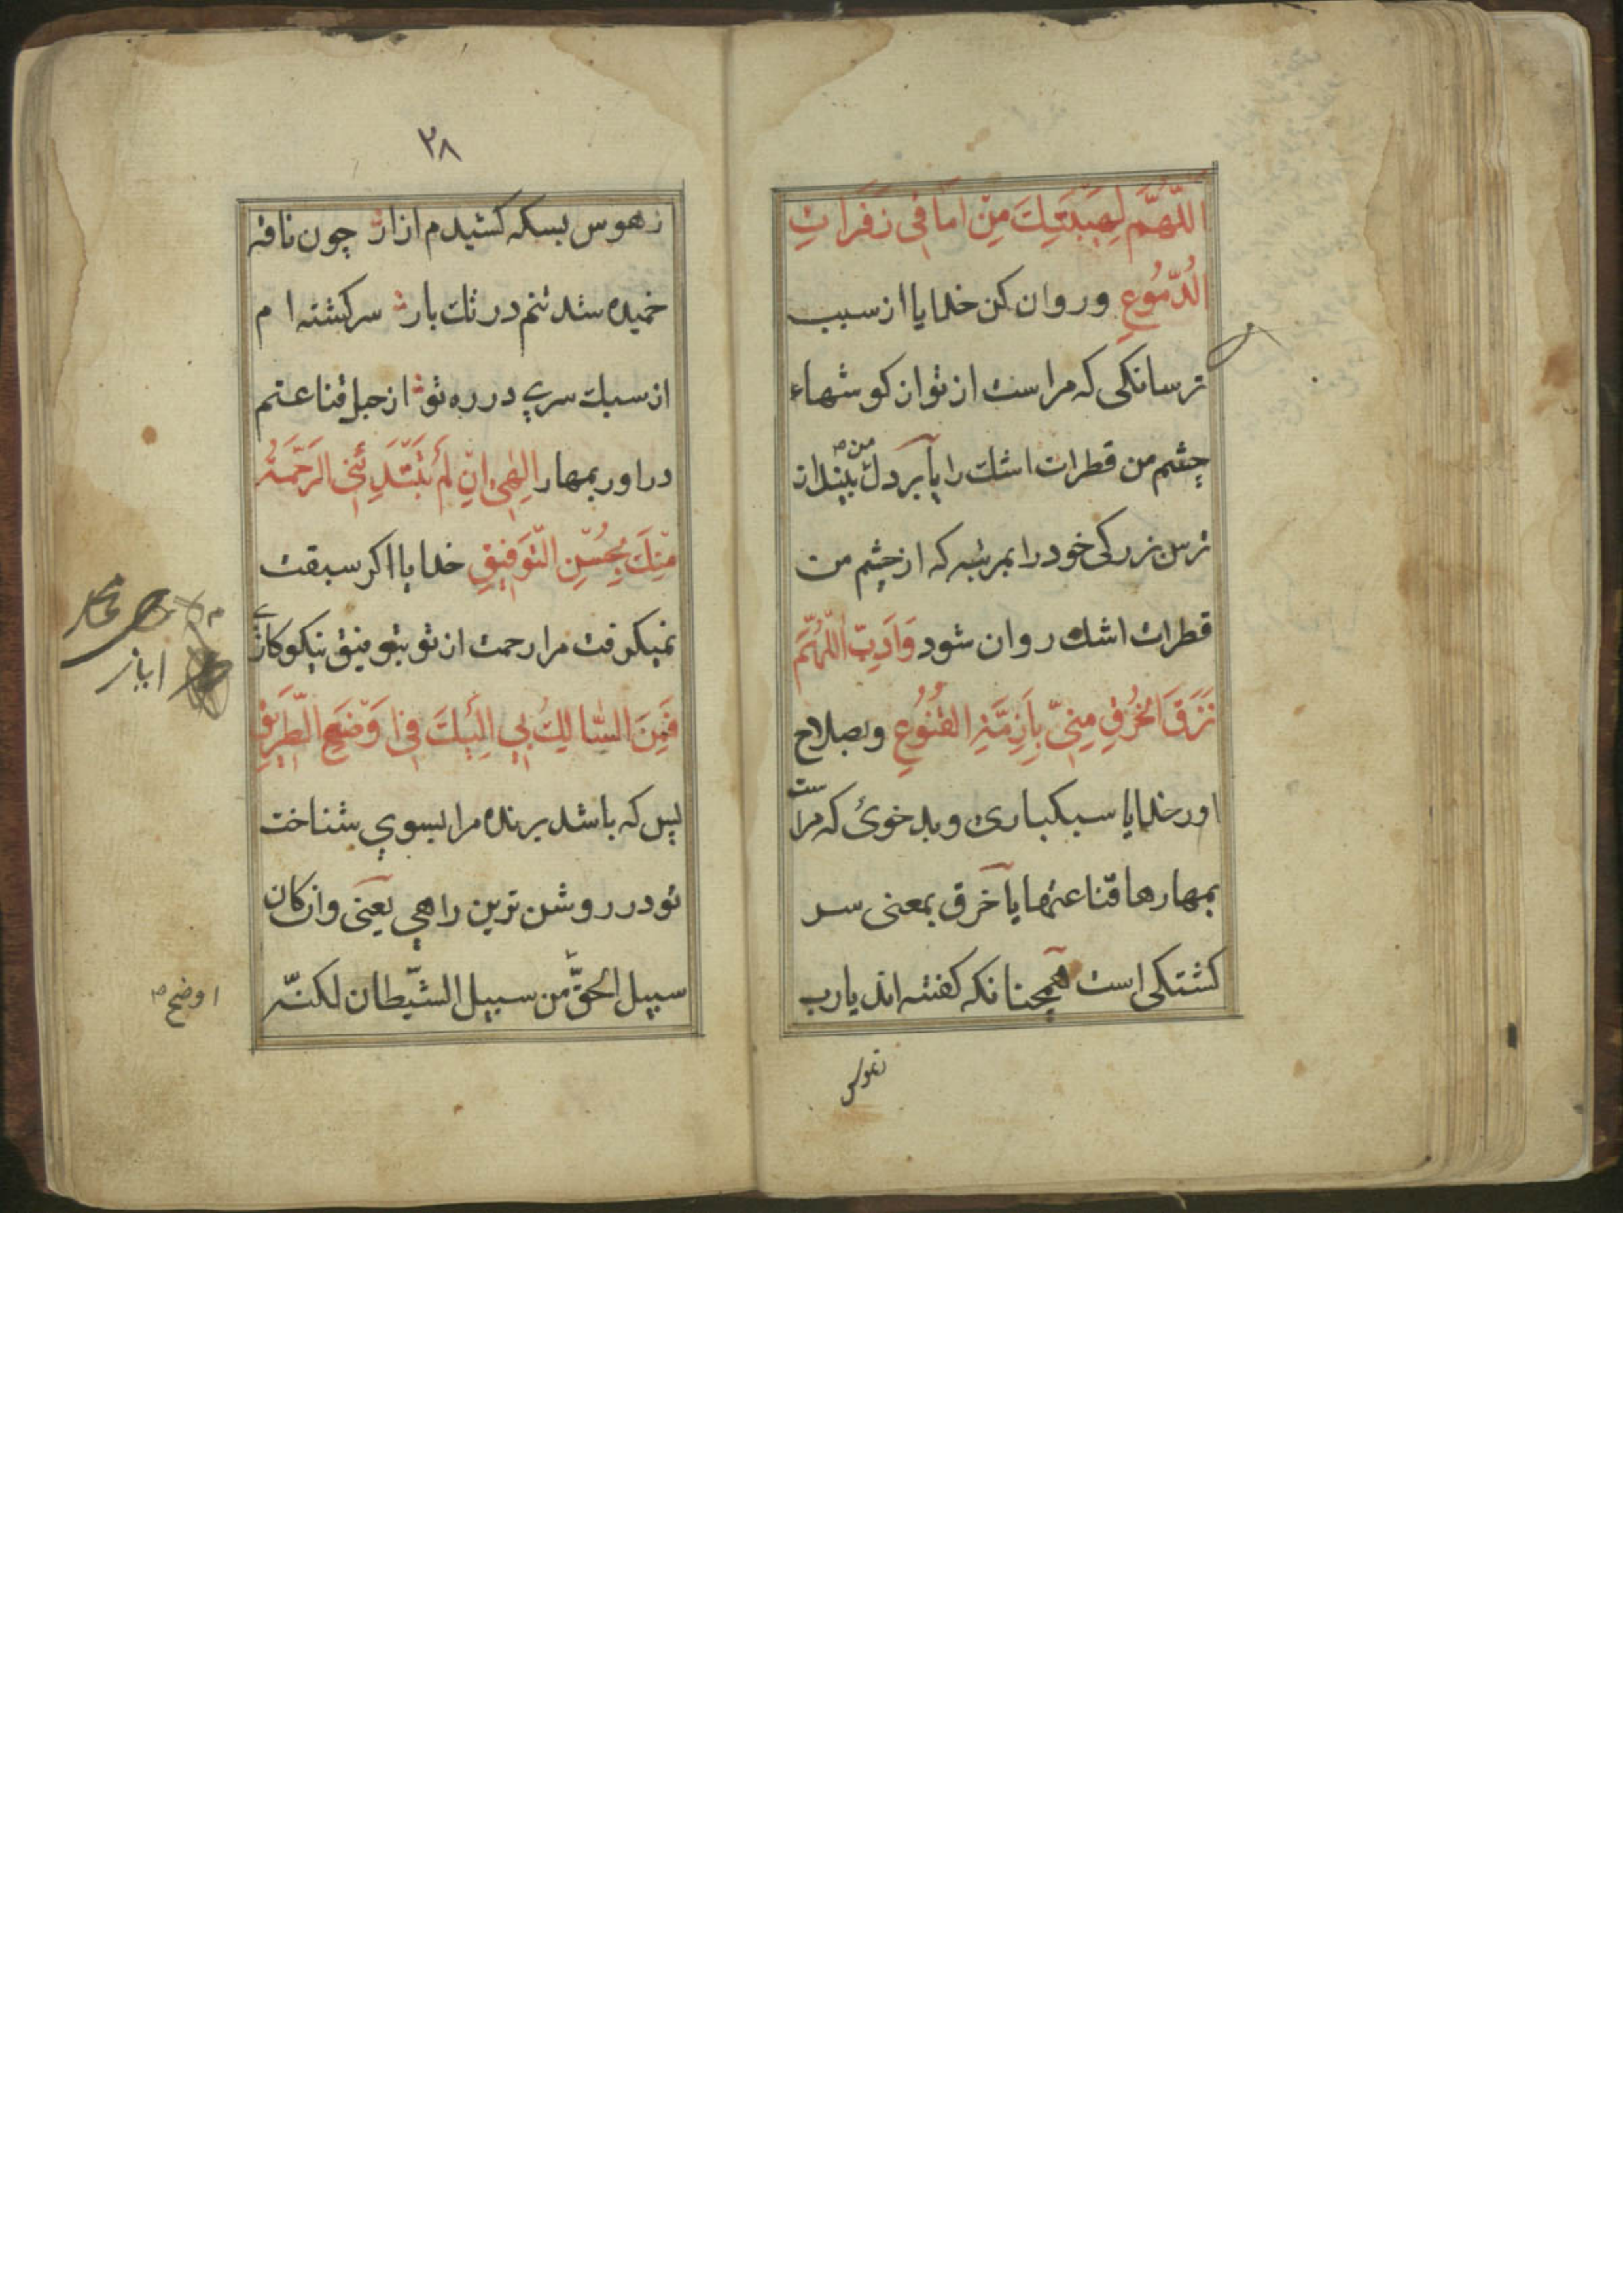 اَللّهُمَّ لِهَيْبَتِكَ مِنْ اَمَاقِى زَفَرَاتِ
الدُّمُوُعِ وروان كن خدايا از سبب
ترسانكى كه مراست از تو از كوشهاء
چشم من قطرات اشك را يا بر دل من بينداز
ترس بزركى خود را بمرتبه كه از چشم من
قطرات اشك روان شود وَاَدِّبِ اللّهُمَّ
نَزَقَ الْخُرْقِ مِنّىِ بِاَزِمَّةِ الْقُنُوُعِ وبصلاح
اور خدايا سبكبارى وبد خوئ كه مراست
بمهارها قناعتها يا خرق بمعنى سر
كشتكى است همچنانكه كفته اند يارب
زهوس
٢٨
زهوس بسكه كشيدم ازار چون نافه
خميده شد تنم در تك بار سركشته ام
از سبك سرى در ره تو از حبل قناعتم
در اور بمهار اِلهِى اِنْ لَمْ تَبْتَدِئْنِى الرَّحْمَةُ
مِنْكَ بِحُسْنِ التَّوْفِيقِ خدايا اكر سبقت
نميكرفت مرا رحمت از تو بتوفيق نيكوكارى
فَمَنِ السَّالِكُ بِى اِلَيْكَ فِى اَوْضَحِ الطَّرِيقِ
پس كه باشد برنده مرا بسوى شناخت
تو در روشن ترين راهى يعنى وان كان
سبيل الحقّ من سبيل الشّيطان لكنّه
اوضح
اياز